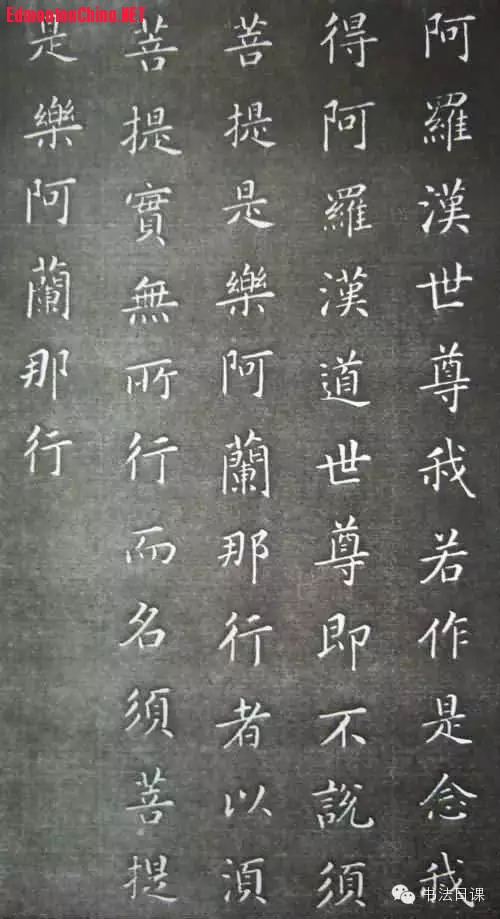 EdmontonChina.NET
阿羅漢世尊我若作是念我
得阿羅漢道世尊即不說須
菩提是樂阿蘭那行者以湏
菩提實無所行而名須菩提
是樂阿蘭那行
书法日课